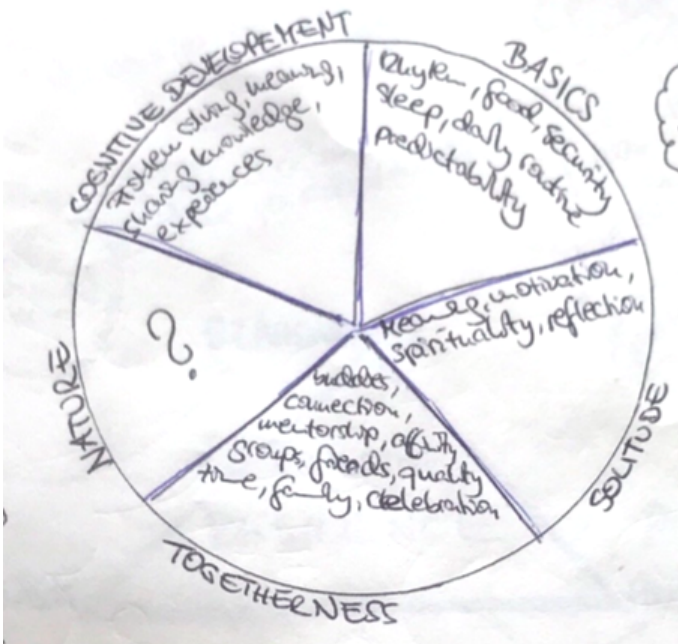 COGNITIVE DEVELOPEMENT
Problem solving, meaning,
sharing knowledge,
experiences
BASICS
Rhythm, food, security
sleep, daily routine
predictability
SOLITUDE
Meaning, motivation,
spirituality, reflection
TOGETHERNESS
buddies,
connection,
mentorship, affinity
groups, friends, quality
time, family, celebration
NATURE
?